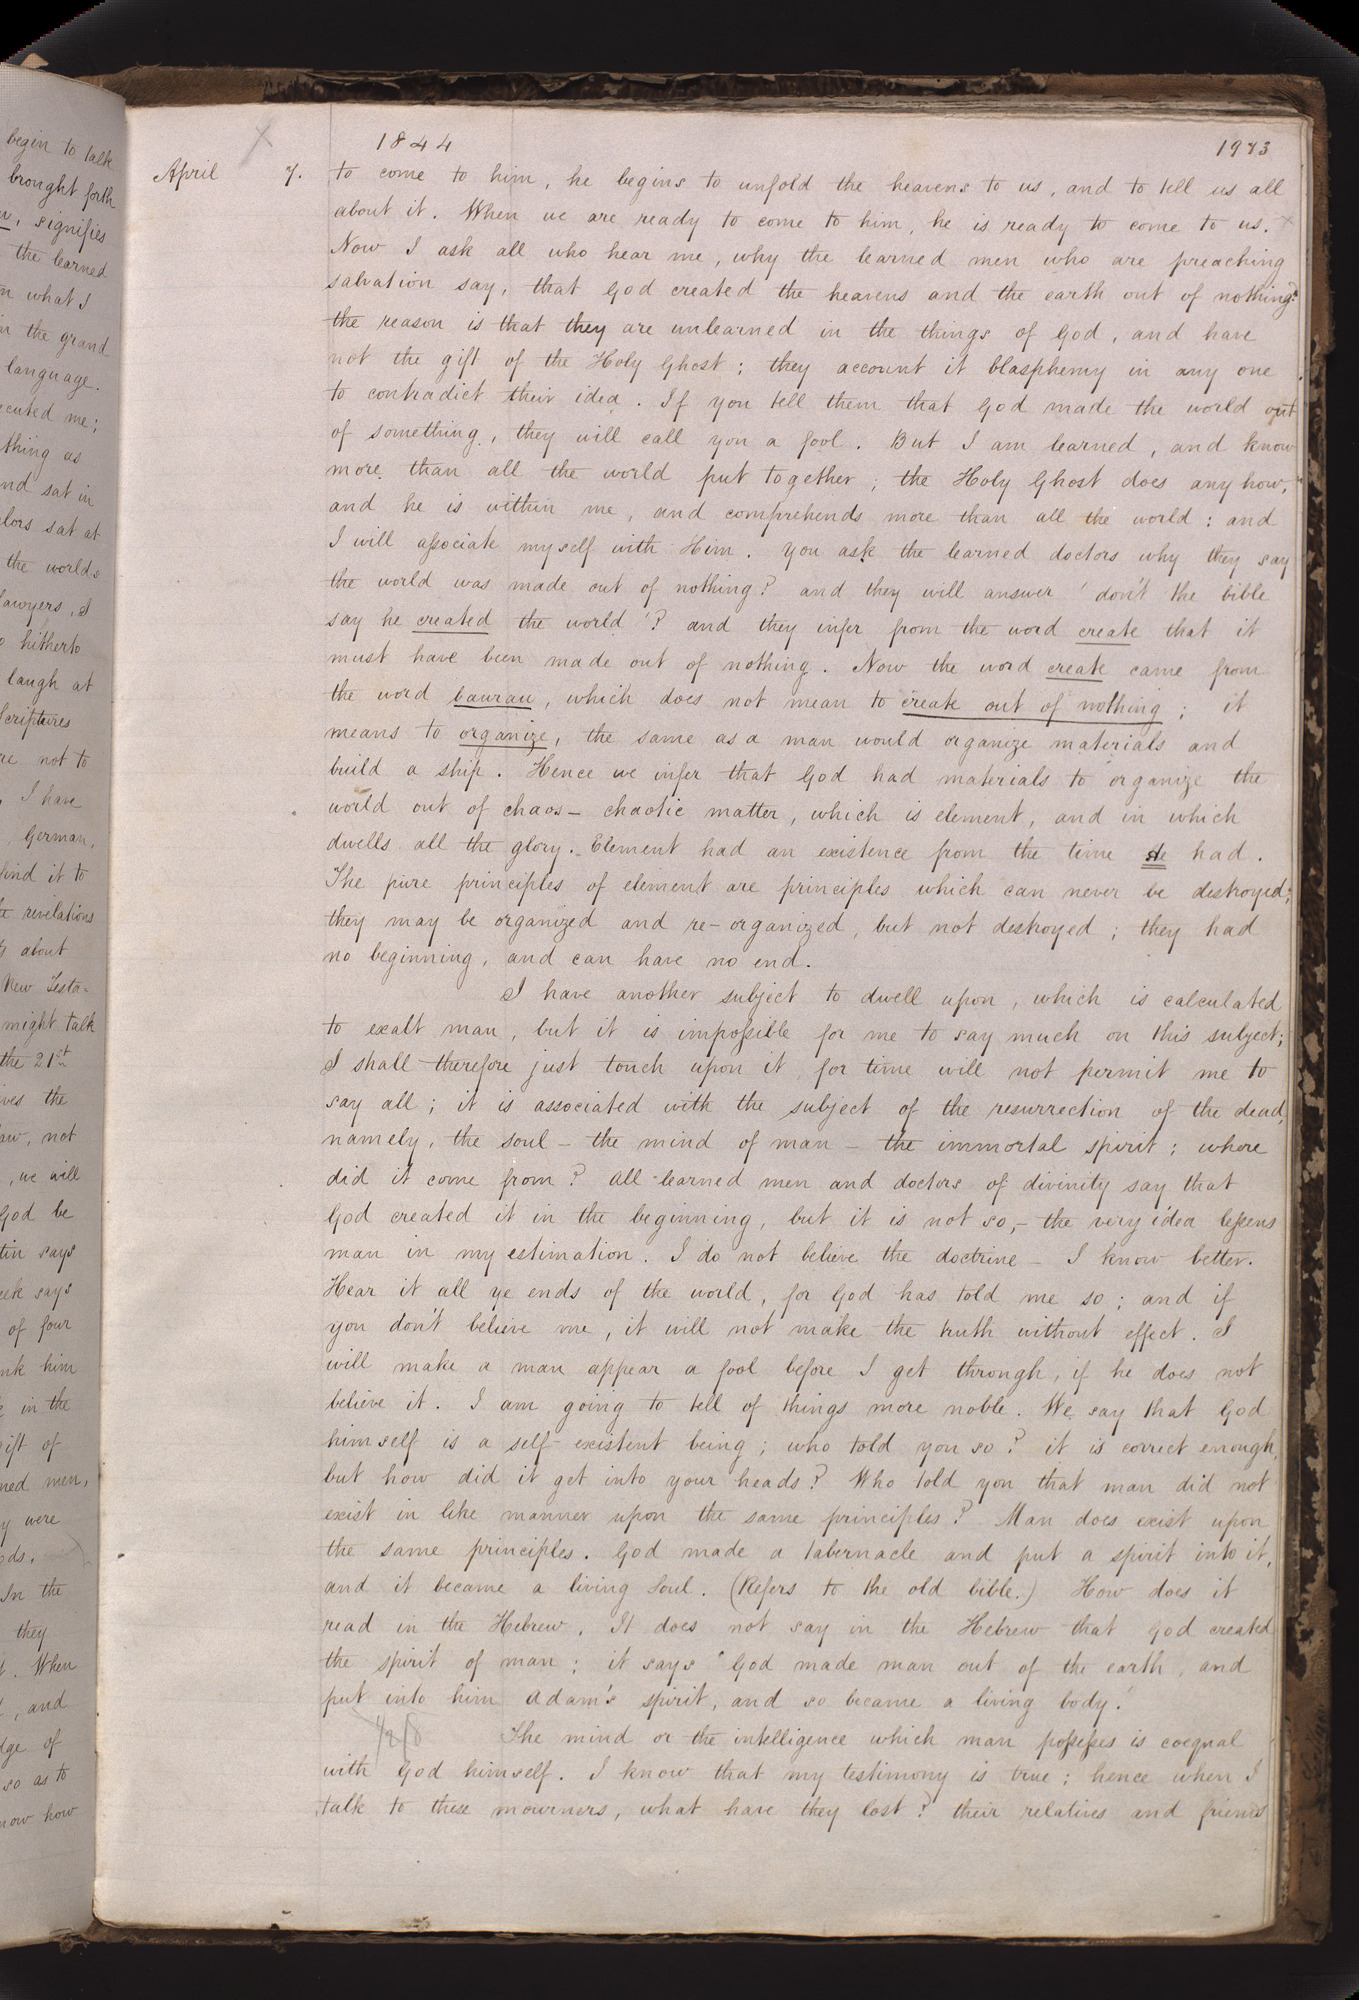 begin to talk
brought forth
signifies
the learned
what I
in the grand
language.
me;
thing as
and sat in
sat at
the worlds
lawyers, I
hitherto
laugh at
Scriptures
not to
I have
German,
find it to
revelations
about
New Testa-
might talk
the 21st
the
not
, we will
God be
says
says
of four
him
in the
gift of
men,
were
In the
they
When
, and
of
so as to
know how
1844
1973
April 7.
to come to him, he begins to unfold the heavens to us, and to tell us all
about it. When we are ready to come to him, he is ready to come to us. x
Now I ask all who hear me, why the learned men who are preaching
salvation say, that God created the heavens and the earth out of nothing?
the reason is that they are unlearned in the things of God, and have
not the gift of the Holy Ghost; they account it blasphemy in any one
to contradict their idea. If you tell them that God made the world out
of something, they will call you a fool. But I am learned, and know
more than all the world put together; the Holy Ghost does any how,
and he is within me, and comprehends more than all the world: and
I will associate myself with Him. You ask the learned doctors why they say
the world was made out of nothing? and they will answer 'don't the bible
say he created the world'? and they infer from the word create that it
must have been made out of nothing. Now the word create came from
the word baurau, which does not mean to create out of nothing; it
means to organize, the same as a man would organize materials and
build a ship. Hence we infer that God had materials to organize the
world out of chaos — chaotic matter, which is element, and in which
dwells all the glory. Element had an existence from the time he had.
The pure principles of element are principles which can never be destroyed;
they may be organized and re-organized, but not destroyed; they had
no beginning, and can have no end.
I have another subject to dwell upon, which is calculated
to exalt man, but it is impossible for me to say much on this subject;
I shall therefore just touch upon it, for time will not permit me to
say all; it is associated with the subject of the resurrection of the dead,
namely, the soul — the mind of man — the immortal spirit; where
did it come from? All learned men and doctors of divinity say that
God created it in the beginning, but it is not so,— the very idea lessens
man in my estimation. I do not believe the doctrine — I know better.
Hear it all ye ends of the world, for God has told me so; and if
you don't believe me, it will not make the truth without effect. I
will make a man appear a fool before I get through, if he does not
believe it. I am going to tell of things more noble. We say that God
himself is a self-existent being; who told you so? it is correct enough,
but how did it get into your heads? Who told you that man did not
exist in like manner upon the same principles? Man does exist upon
the same principles. God made a tabernacle and put a spirit into it,
and it became a living Soul. (Refers to the old bible.) How does it
read in the Hebrew. It does not say in the Hebrew that God created
the spirit of man; it says "God made man out of the earth, and
put into him Adam's spirit, and so became a living body."
The mind or the intelligence which man possesses is coequal
with God himself. I know that my testimony is true; hence when I
talk to these mourners, what have they lost? their relatives and friends